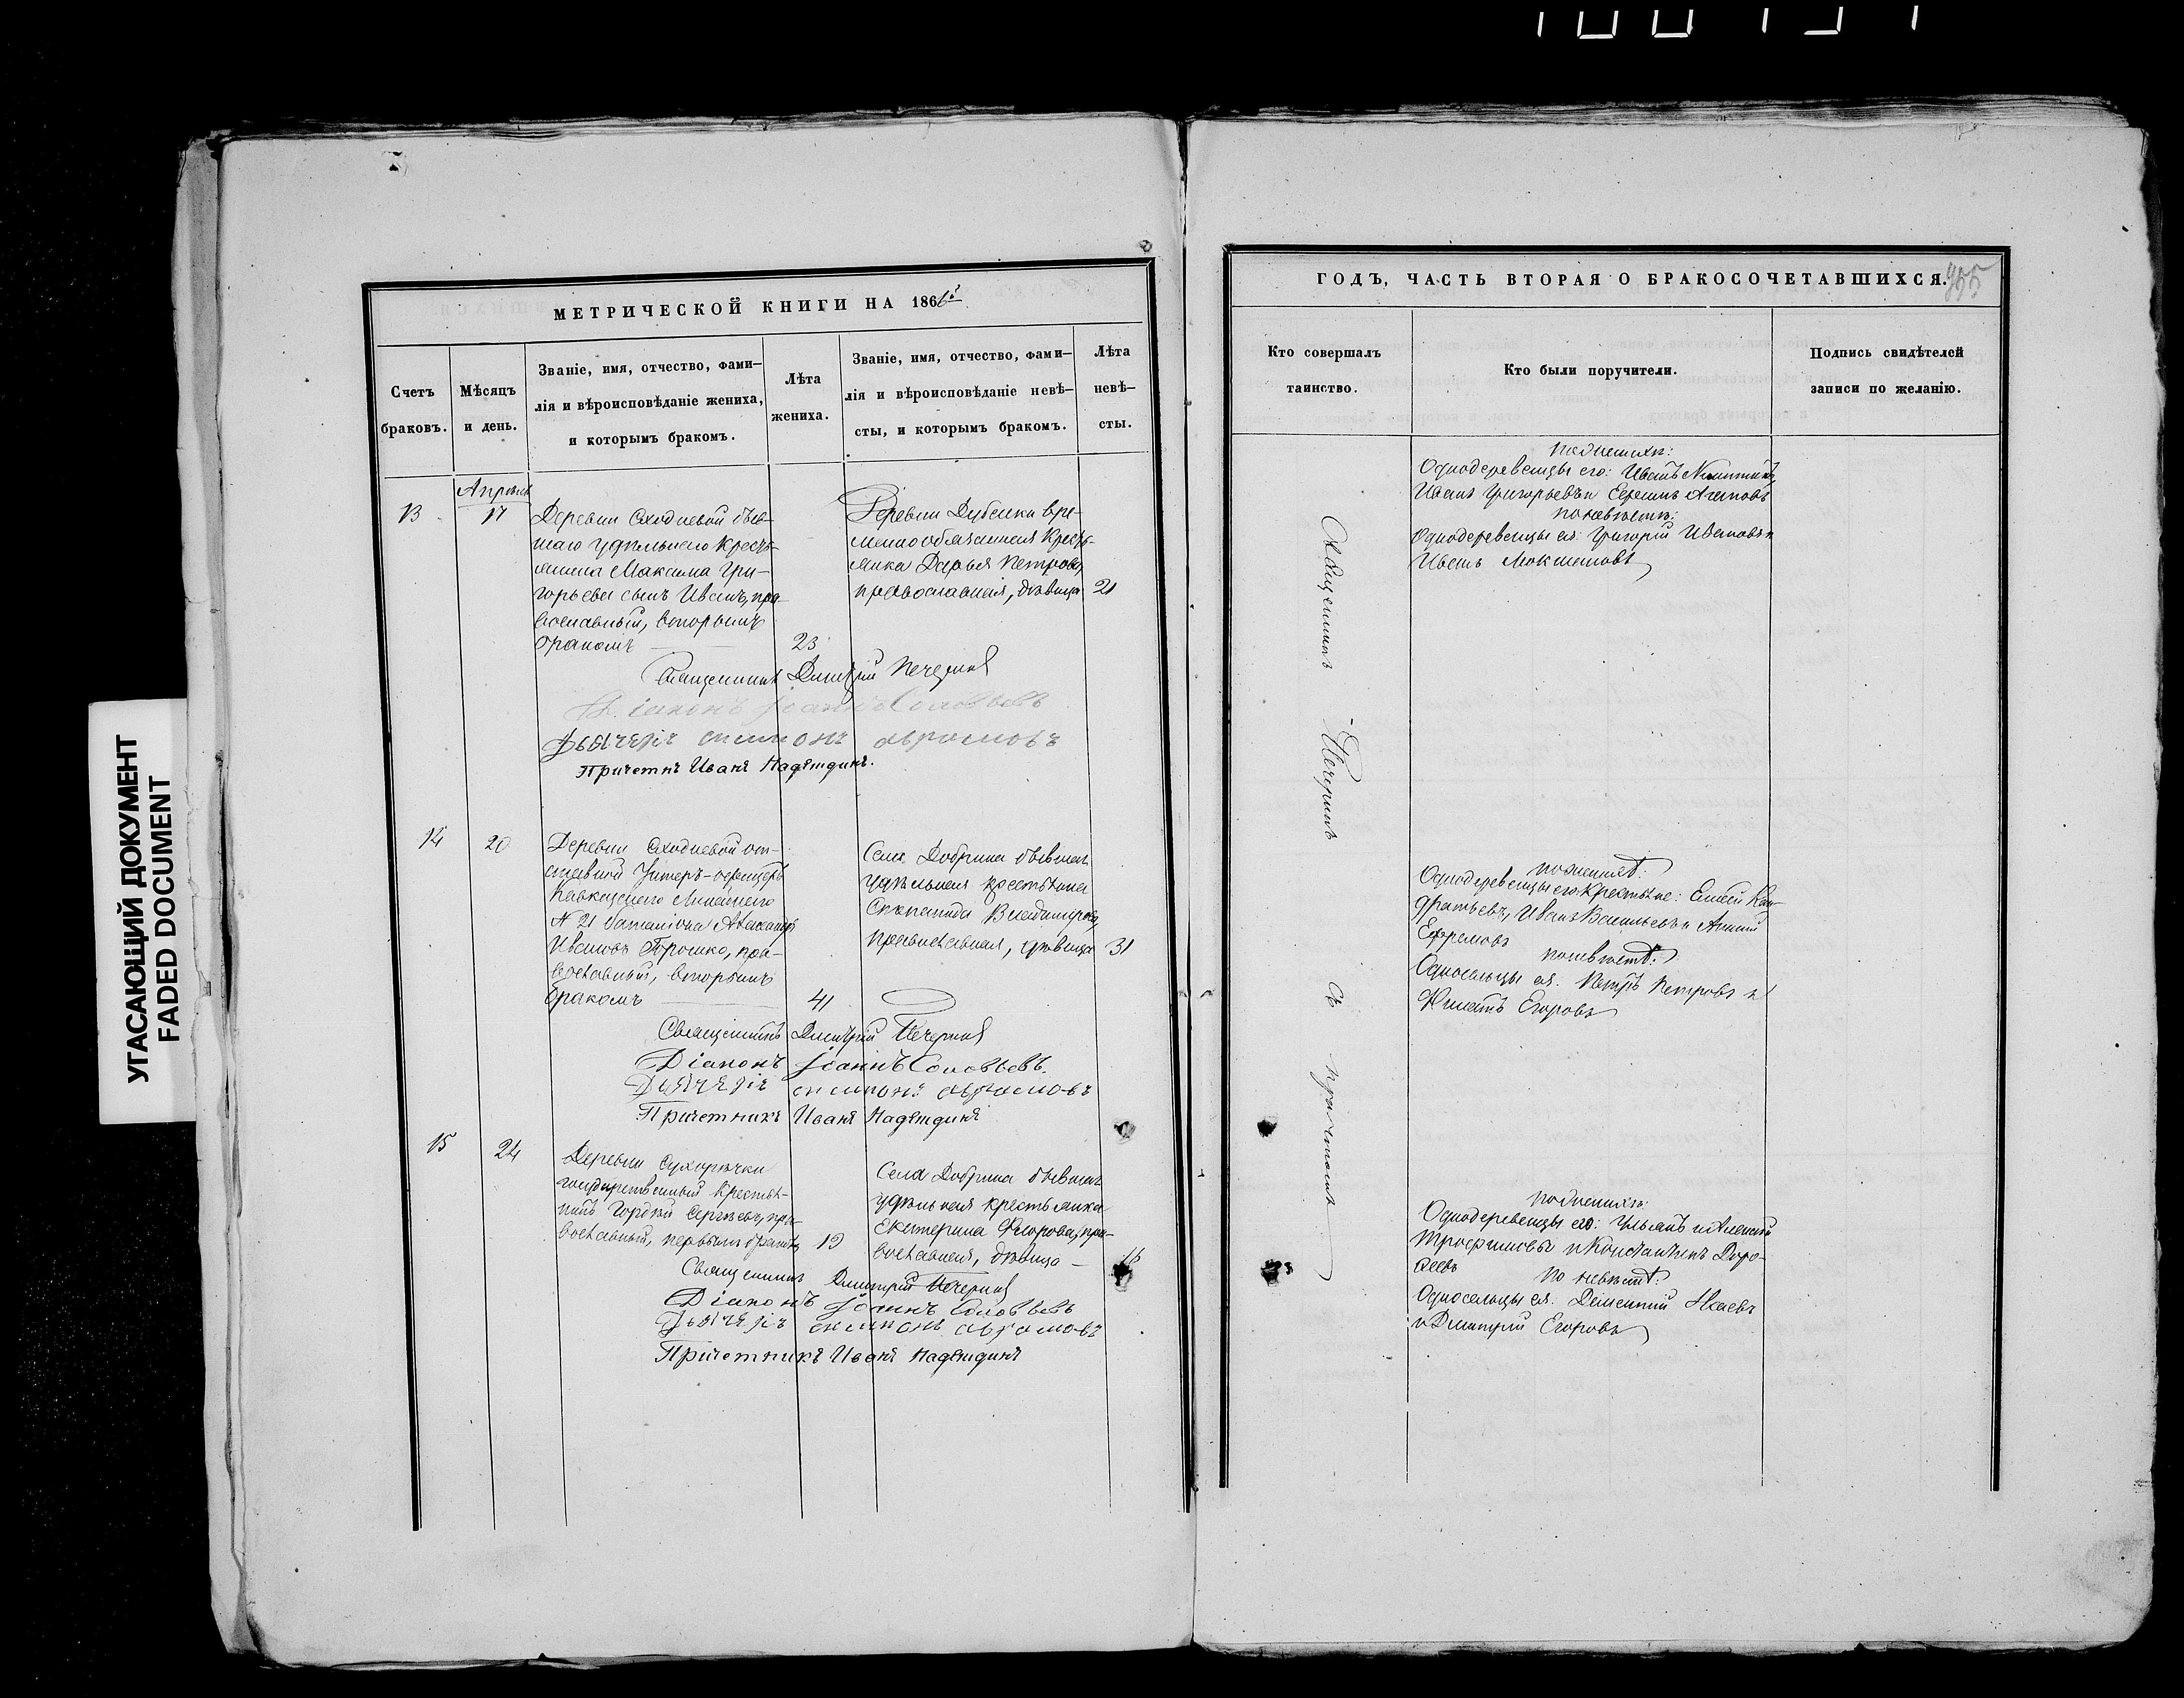 УГАСАЮЩИЙ ДОКУМЕНТ
FADED DOCUMENT
МЕТРИЧЕСКОЙ КНИГИ НА 1866й
Счетъ
браковъ.
Мѣсяцъ
и день.
Званіе, имя, отчество, фами-
лія и вѣроисповѣданіе жениха,
и которымъ бракомъ.
Лѣта
жениха.
Званіе, имя, отчество, фами-
лія и вѣроисповѣданіе невѣ-
сты, и которымъ бракомъ.
Лѣта
невѣ-
сты.
Апрѣль
13
17
Деревни Сходневой быв-
шаго удѣльнаго кресть-
янина Максима Гри-
горьева сынъ Иванъ, пра-
вославный, вторымъ
бракомъ
23
Деревни Дубенки вре-
меннообязанная кресть-
янка Дарья Петрова,
православная, дѣвица
21
Священникъ Дмитрій Печеринъ
Діаконъ Іоаннъ Соловьевъ
Дьячекъ Симионъ Аврамовъ
Причетнъ Иванъ Надеждинъ.
14
20
Деревни Сходневой от-
ставной Унтеръ-офицеръ
Кавказскаго Линейнаго
N 21 баталіона Александръ
Ивановъ Торошко, пра-
вославный, вторымъ
бракомъ
41
Села Добрина бывшая
удѣльная крестьянка
Владимірова,
православная, дѣвица
31
Священникъ Дмитрій Печеринъ
Діаконъ Іоаннъ Соловьевъ.
Дьячекъ Симионъ Аврамовъ
Причетникъ Иванъ Надеждинъ
15
24
Деревни Сухорѣчки
государственный крестья-
нинъ Гордѣй Сергѣевъ, пра-
вославный, первымъ бракомъ
19
Села Добрина бывшая
удѣльная крестьянка
Екатерина Ѳедорова, пра-
вославная, дѣвица
Священникъ Дмитрій Печеринъ
Діаконъ Іоаннъ Соловьевъ
Дьячекъ Симионъ Аврамовъ
Причетникъ Иванъ Надеждинъ
ГОДЪ, ЧАСТЬ ВТОРАЯ О БРАКОСОЧЕТАВШИХСЯ.
355
Кто совершалъ
таинство.
Кто были поручители.
Подпись свидѣтелей
записи по желанію.
Священникъ Печеринъ съ причтомъ
По женихѣ:
Однодеревенцы его: Иванъ Никитинъ,
Иванъ Григорьевъ и Ефимъ Агаповъ
по невѣстѣ:
Однодеревенцы ея: Григорій Ивановъ и
Иванъ
по женихѣ:
Однодеревенцы его крестьяне: Кон-
дратьевъ, Иванъ Васильевъ и
Ефремовъ
по невѣстѣ:
Односельцы ея: Петръ Петровъ и
Егоровъ
По женихѣ:
Однодеревенцы его: Ульянъ и Алексѣй
Трофимовы и Константинъ Доро-
феевъ
По невѣстѣ:
Односельцы ея: Дементій
и Дмитрій Егоровъ